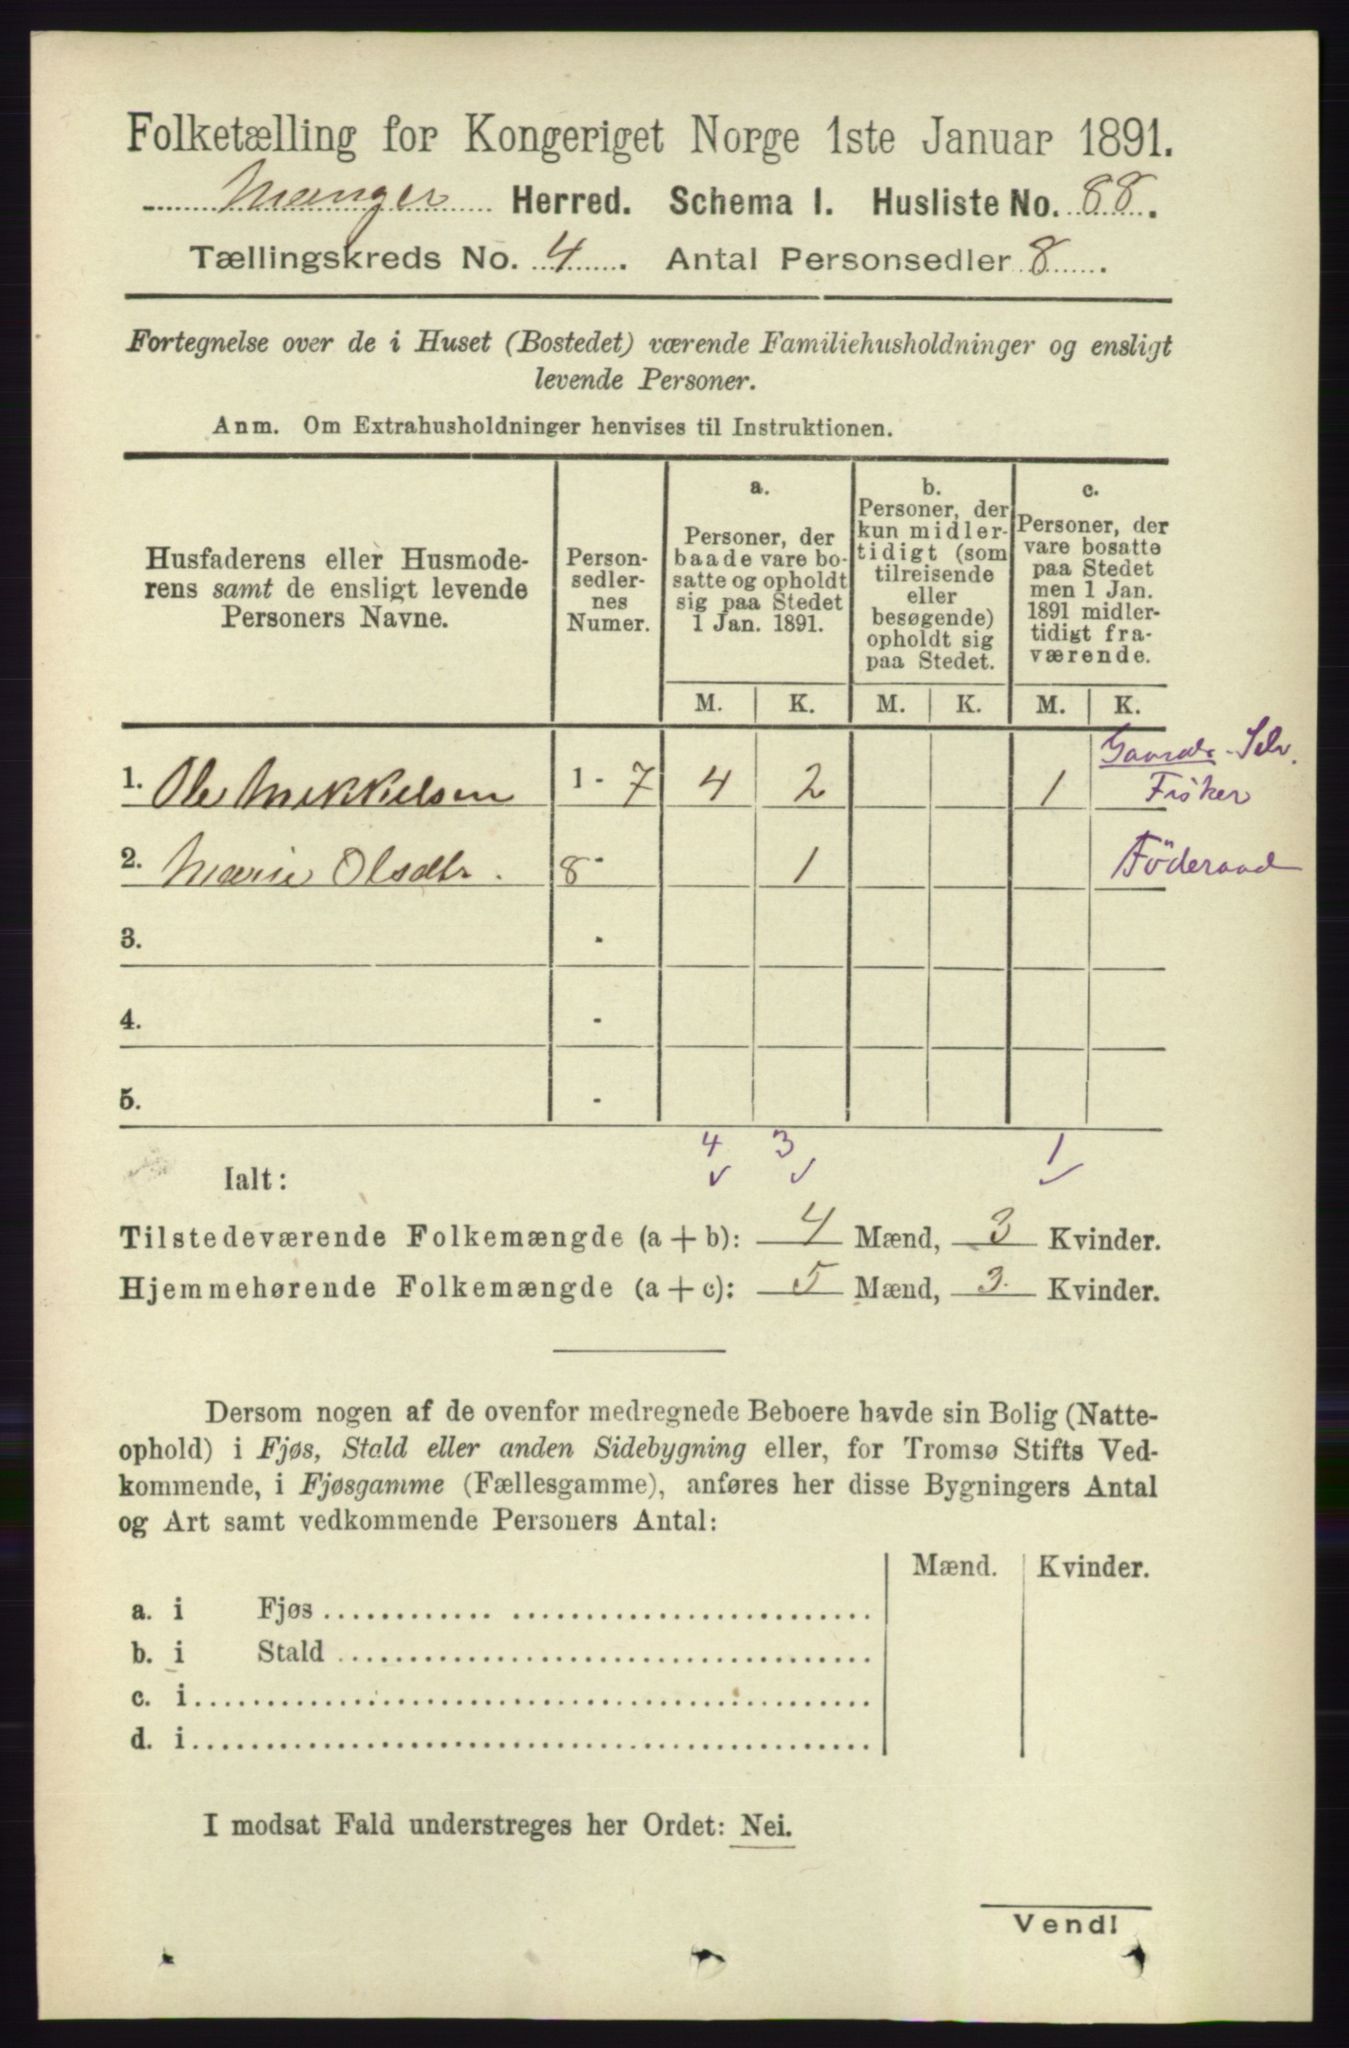 Folketælling for Kongeriget Norge 1ste Januar 1891.
Manger Herred. Schema I. Husliste No. 88.
Tællingskreds No. 4. Antal Personsedler 8.
Fortegnelse over de i Huset (Bostedet) værende Familiehusholdninger og ensligt
levende Personer.
Anm. Om Extrahusholdninger henvises til Instruktionen.
Husfaderens eller Husmode-
rens samt de ensligt levende
Personers Navne.
Person-
sedler-
nes
Numer.
a.
Personer, der
baade vare bo-
satte og opholdt
sig paa Stedet
1 Jan. 1891.
b.
Personer, der
kun midler-
tidigt (som
tilreisende
eller
besøgende)
opholdt sig
paa Stedet.
c.
Personer, der
vare bosatte
paa Stedet
men 1 Jan.
1891 midler-
tidigt fra-
værende.
M. K. M. K. M. K.
1. Ole Mikkelsen 1 - 7 4 2 1 Gaardbr. Selv.
Fisker
2. Marie Olsdtr. 8 - 1 Föderaad
3. -
4. -
5. -
4 3 1
Ialt:
Tilstedeværende Folkemængde (a + b): 4 Mænd, 3 Kvinder.
Hjemmehørende Folkemængde (a + c): 5 Mænd, 3 Kvinder.
Dersom nogen af de ovenfor medregnede Beboere havde sin Bolig (Natte-
ophold) i Fjøs, Stald eller anden Sidebygning eller, for Tromsø Stifts Ved-
kommende, i Fjøsgamme (Fællesgamme), anføres her disse Bygningers Antal
og Art samt vedkommende Personers Antal:
Mænd. Kvinder.
a. i Fjøs
b. i Stald
c. i
d. i
I modsat Fald understreges her Ordet: Nei.
Vend!